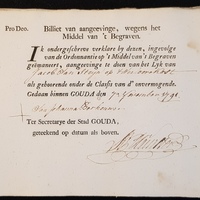 Pro Deo. Billiet van aangeevinge, wegens het
Middel van 't Begraven.
Ik ondergeschreve verklare by dezen, ingevolge
van de Ordonnantie op 't Middel van 't Begraven
geëmaneert, aangeevinge te doen van het Lyk van
Jacob van
als gehoorende onder de Classis van d' onvermogende.
Gedaan binnen GOUDA den 7 November 1791
Johanna
Ter Secretarye der Stad GOUDA,
geteekend op datum als boven.